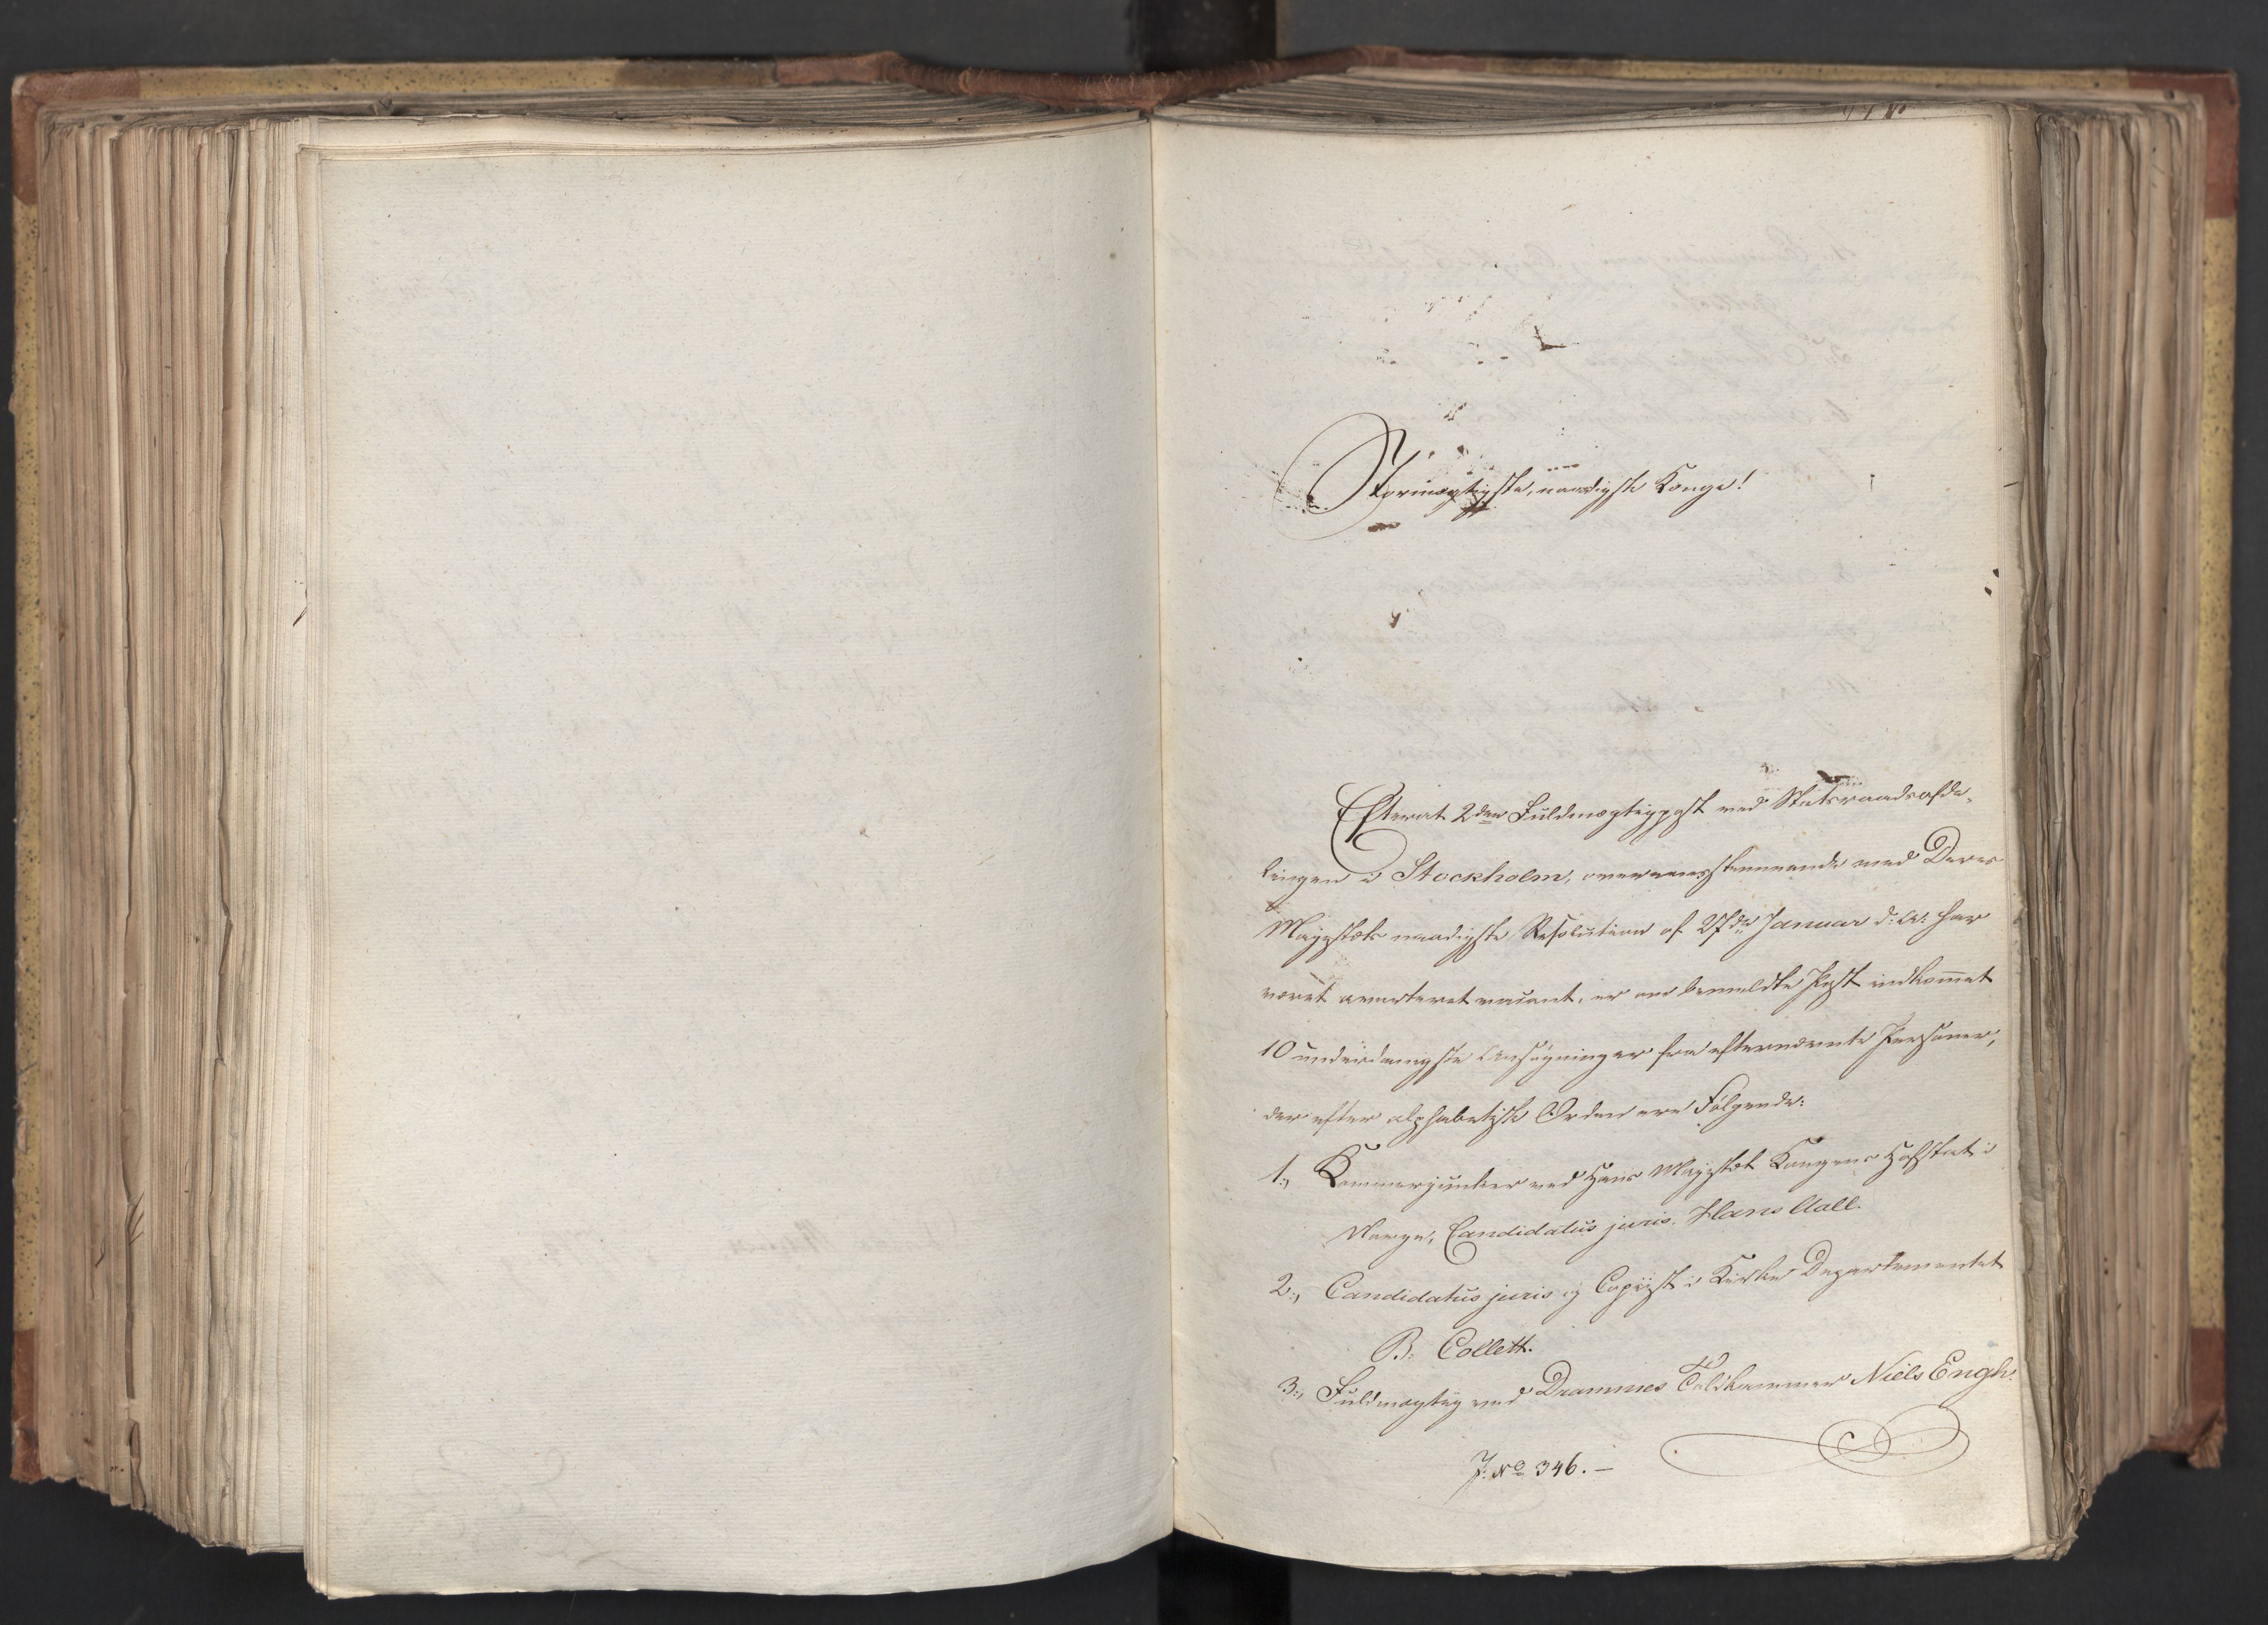 Stormægtigste, naadigste Konge!
Efterat 2den Fuldmægtigpost ved Statsraadsafde-
lingen i Stockholm, overeensstemmende med Deres
Majestæts naadigste Resolution af 27de Januar d: A: har
været averteret vacant, er om bemeldte Post indkom̅et
10 underdanigste Ansøgninger fra efternævnte Personer,
der efter alphabetisk Orden ere Følgende:
1., Kammerjunker ved Hans Majestæt Kongens Hofstat i
Norge, Candidatus juris Hans Aall.
2., Candidatus juris og Copiist i Kirke Departementet
B. Collett.
3., Fuldmægtig ved Drammes Toldkammer Niels Engh.
J. No 346. —